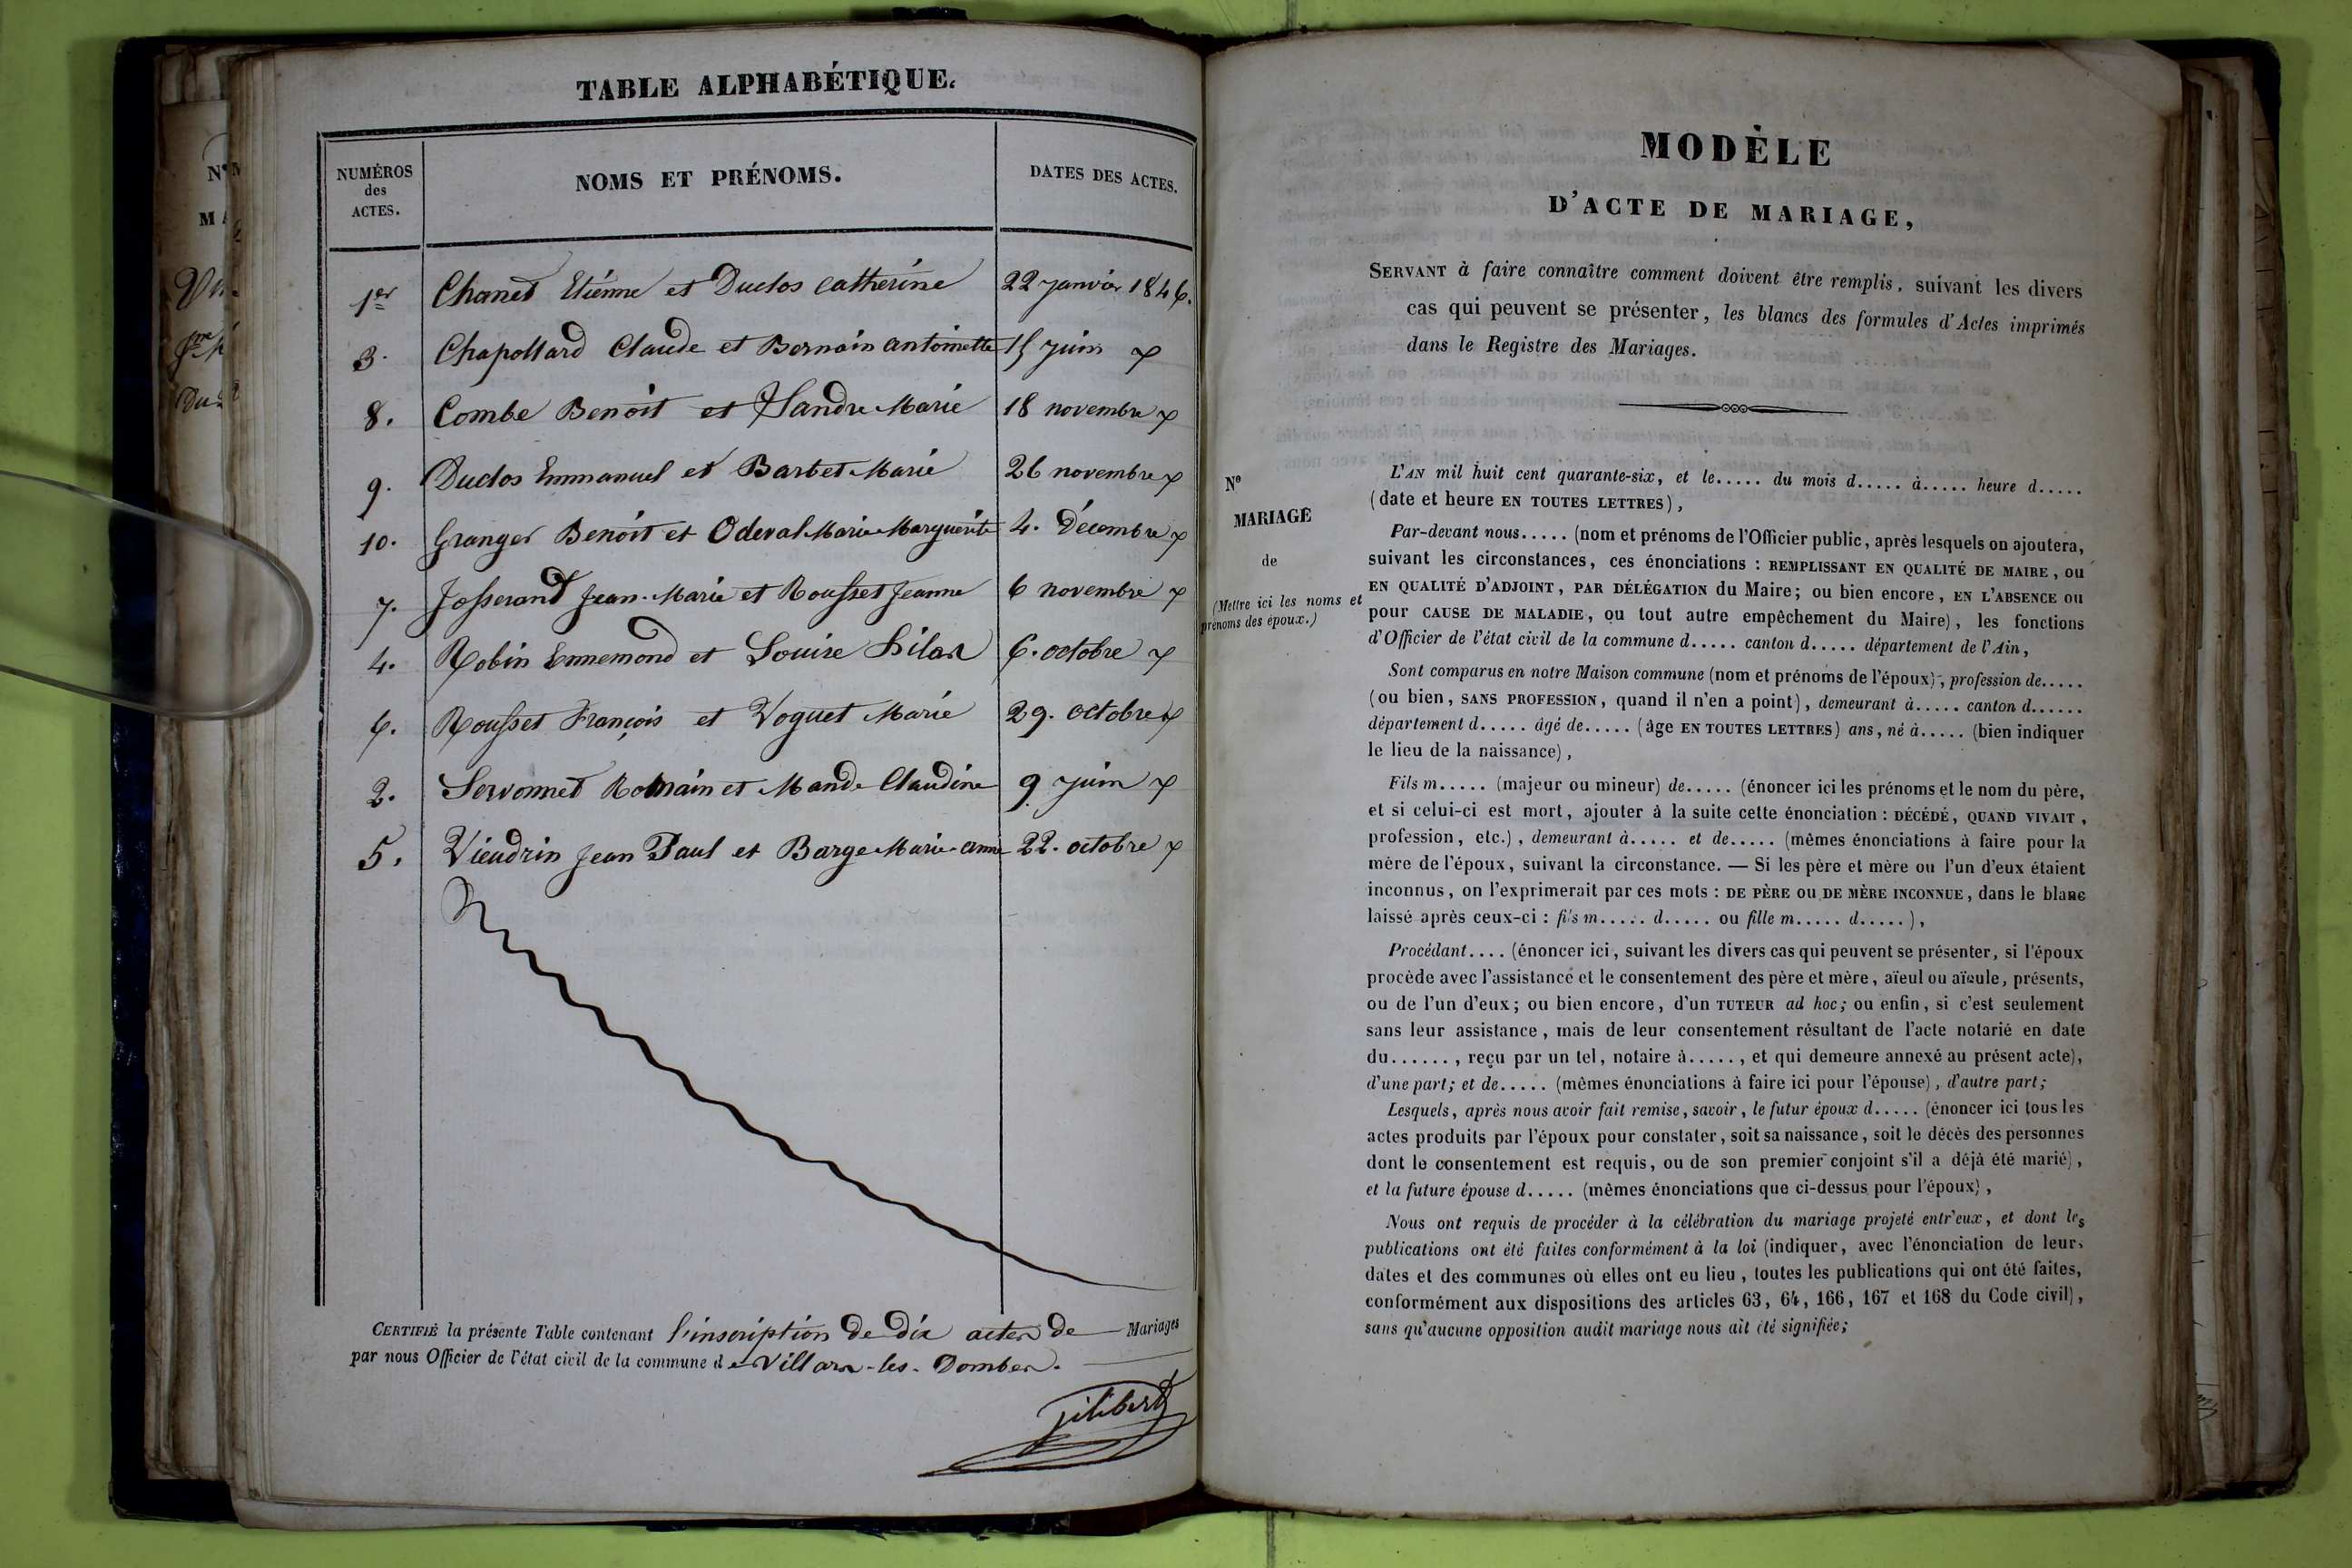 TABLE ALPHABÉTIQUE.
NUMÉROS des ACTES. NOMS ET PRÉNOMS. DATES DES ACTES.
1er Chanet Etienne et Duclos Catherine 22 janvier 1846.
3. Chapollard Claude et Bernain Antoinette 15 juin
8. Combe Benoit et Sandre Marie 18 novembre
9. Duclos Emmanuel et Barbet Marie 26 novembre
10. Granger Benoit et Oderal Marie Marguerite 4. Décembre
7. Josserand Jean-Marie et Rousset Jeanne 6 novembre
4. Robin Ennemond et Louise 6. octobre
6. Rousset François et Voguet Marie 29. octobre
2. Servonnet Romain et Mande Claudine 9 juin
5. Vieudrin Jean Paul et Barge Marie-anne 22. octobre
CERTIFIÉ la présente Table contenant l'inscription de dix actes de Mariages
par nous Officier de l'état civil de la commune de Villars-les-Dombes.
Jilibert
MODÈLE
D'ACTE DE MARIAGE,
SERVANT à faire connaître comment doivent être remplis, suivant les divers
cas qui peuvent se présenter, les blancs des formules d'Actes imprimés
dans le Registre des Mariages.
No
MARIAGE
de
(Mettre ici les noms et
prénoms des époux.)
L'AN mil huit cent quarante-six, et le..... du mois d..... à..... heure d.....
(date et heure EN TOUTES LETTRES),
Par-devant nous..... (nom et prénoms de l'Officier public, après lesquels on ajoutera,
suivant les circonstances, ces énonciations : REMPLISSANT EN QUALITÉ DE MAIRE, ou
EN QUALITÉ D'ADJOINT, PAR DÉLÉGATION du Maire; ou bien encore, EN L'ABSENCE ou
pour CAUSE DE MALADIE, ou tout autre empêchement du Maire), les fonctions
d'Officier de l'état civil de la commune d..... canton d..... département de l'Ain,
Sont comparus en notre Maison commune (nom et prénoms de l'époux), profession de.....
(ou bien, SANS PROFESSION, quand il n'en a point), demeurant à..... canton d......
département d..... âgé de..... (âge EN TOUTES LETTRES) ans, né à..... (bien indiquer
le lieu de la naissance),
Fils m..... (majeur ou mineur) de..... (énoncer ici les prénoms et le nom du père,
et si celui-ci est mort, ajouter à la suite cette énonciation : DÉCÉDÉ, QUAND VIVAIT,
profession, etc.), demeurant à..... et de..... (mêmes énonciations à faire pour la
mère de l'époux, suivant la circonstance. — Si les père et mère ou l'un d'eux étaient
inconnus, on l'exprimerait par ces mots : DE PÈRE ou DE MÈRE INCONNUE, dans le blanc
laissé après ceux-ci : fils m..... d..... ou fille m..... d.....),
Procédant.... (énoncer ici, suivant les divers cas qui peuvent se présenter, si l'époux
procède avec l'assistance et le consentement des père et mère, aïeul ou aïeule, présents,
ou de l'un d'eux; ou bien encore, d'un TUTEUR ad hoc; ou enfin, si c'est seulement
sans leur assistance, mais de leur consentement résultant de l'acte notarié en date
du......, reçu par un tel, notaire à....., et qui demeure annexé au présent acte),
d'une part; et de..... (mêmes énonciations à faire ici pour l'épouse), d'autre part;
Lesquels, après nous avoir fait remise, savoir, le futur époux d..... (énoncer ici tous les
actes produits par l'époux pour constater, soit sa naissance, soit le décès des personnes
dont le consentement est requis, ou de son premier conjoint s'il a déjà été marié),
et la future épouse d..... (mêmes énonciations que ci-dessus pour l'époux),
Nous ont requis de procéder à la célébration du mariage projeté entr'eux, et dont les
publications ont été faites conformément à la loi (indiquer, avec l'énonciation de leurs
dates et des communes où elles ont eu lieu, toutes les publications qui ont été faites,
conformément aux dispositions des articles 63, 64, 166, 167 et 168 du Code civil),
sans qu'aucune opposition audit mariage nous ait été signifiée;